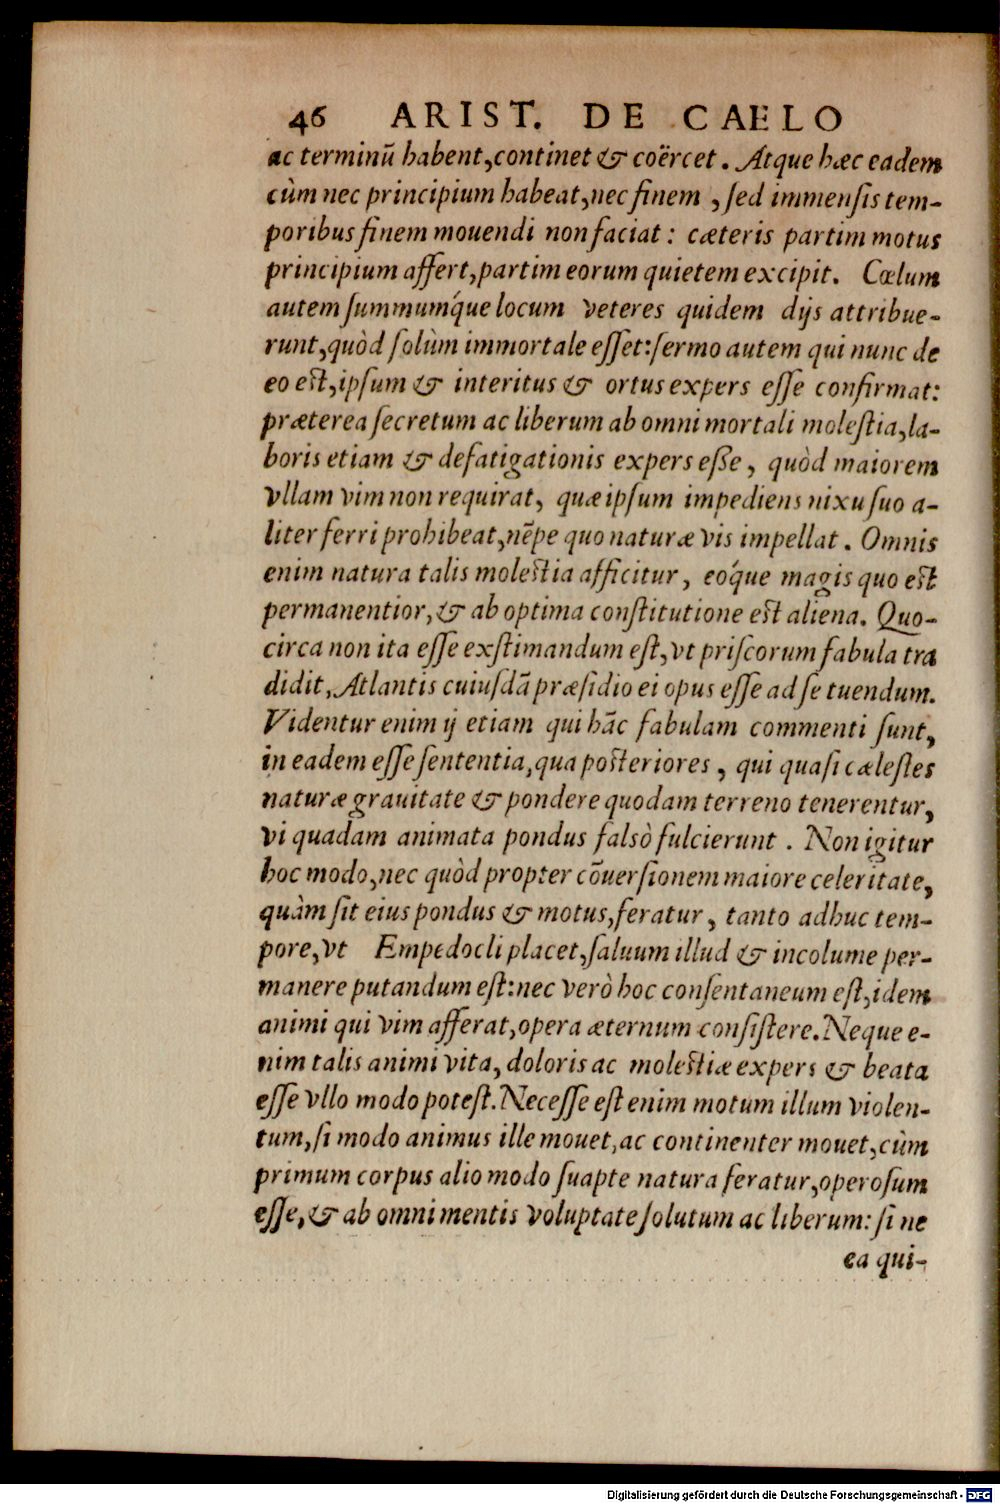 46 ARIST. DE CAELO
ac terminū habent, continet & coërcet. Atque hæc eadem
cùm nec principium habeat, nec finem, sed immensis tem-
poribus finem mouendi non faciat: cæteris partim motus
principium affert, partim eorum quietem excipit. Cœlum
autem summumq́ue locum veteres quidem dijs attribue-
runt, quòd solùm immortale esset: sermo autem qui nunc de
eo est, ipsum & interitus & ortus expers esse confirmat:
præterea secretum ac liberum ab omni mortali molestia, la-
boris etiam & defatigationis expers eße, quòd maiorem
vllam vim non requirat, quæ ipsum impediens nixu suo a-
liter ferri prohibeat, nēpe quo naturæ vis impellat. Omnis
enim natura talis molestia afficitur, eoq́ue magis quo est
permanentior, & ab optima constitutione est aliena. Quo-
circa non ita esse exstimandum est, vt priscorum fabula tra
didit, Atlantis cuiusdā præsidio ei opus esse ad se tuendum.
Videntur enim ij etiam qui hāc fabulam commenti sunt,
in eadem esse sententia, qua posteriores, qui quasi cælestes
naturæ grauitate & pondere quodam terreno tenerentur,
vi quadam animata pondus falsò fulcierunt. Non igitur
hoc modo, nec quòd propter cōuersionem maiore celeritate,
quàm sit eius pondus & motus, feratur, tanto adhuc tem-
pore, vt Empedocli placet, saluum illud & incolume per-
manere putandum est: nec verò hoc consentaneum est, idem
animi qui vim afferat, opera æternum consistere. Neque e-
nim talis animi vita, doloris ac molestiæ expers & beata
esse vllo modo potest. Necesse est enim motum illum violen-
tum, si modo animus ille mouet, ac continenter mouet, cùm
primum corpus alio modo suapte natura feratur, operosum
esse, & ab omni mentis voluptate solutum ac liberum: si ne
ea qui-
Digitalisierung gefördert durch die Deutsche Forschungsgemeinschaft - DFG